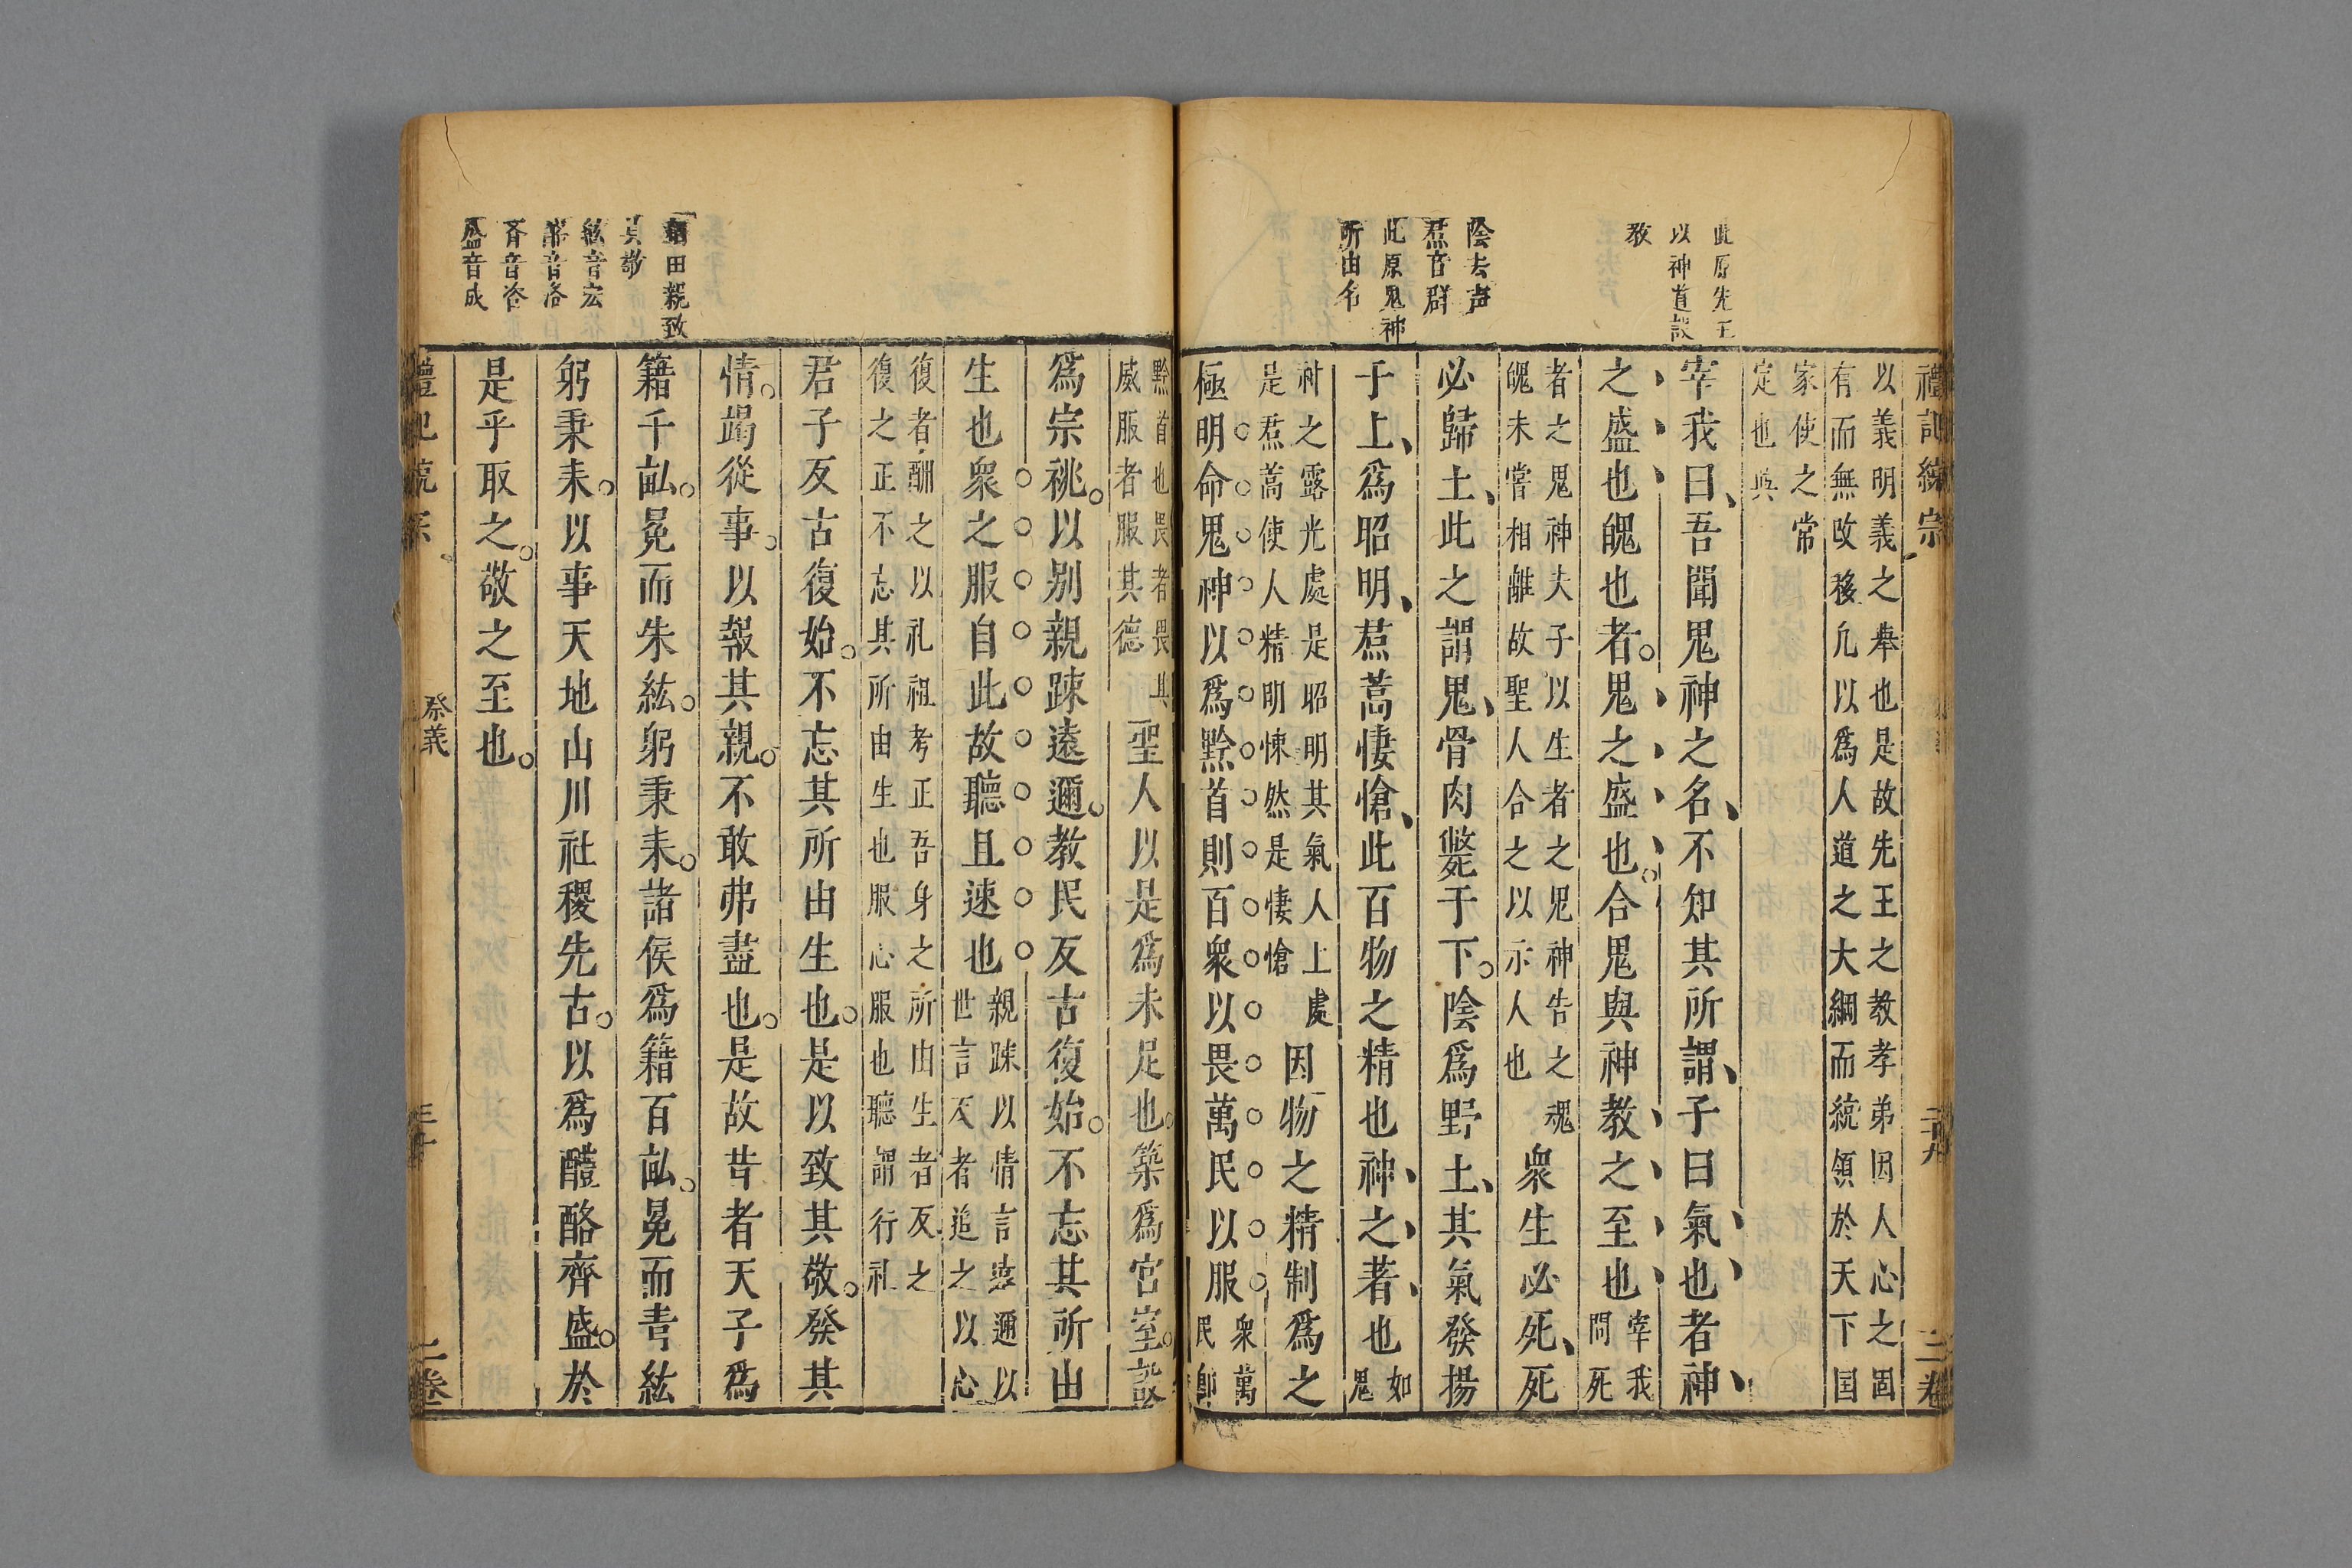 此原先王
以神道設
教
陰去声
焄音群
此原鬼神
所由名
禮記統宗
二十九
三卷
以義明義之舉也是故先王之教孝弟因人心之固
有而無改移凢以為人道之大綱而統領於天下国
家使之常
定也與
宰我曰吾聞鬼神之名不知其所謂子曰氣也者神
之盛也魄也者鬼之盛也合鬼與神教之至也宰我
問死
者之鬼神夫子以生者之鬼神告之魂
魄未嘗相離故聖人合之以示人也衆生必死死
必歸土此之謂鬼骨肉斃于下陰爲野土其氣發揚
于上爲昭明焄蒿悽愴此百物之精也神之著也如
鬼
神之露光處是昭明其氣人上處
是焄蒿使人精明悚然是悽愴因物之精制爲之
極明命鬼神以爲黔首則百衆以畏萬民以服衆萬
民即
黔首也畏者畏其
威服者服其德聖人以是爲未足也築爲宮室設
爲宗祧以别親踈遠邇教民反古復始不忘其所由
生也衆之服自此故聽且速也親踈以情言遠邇以
世言反者追之以心
復者酬之以礼祖考正吾身之所由生者反之
復之正不忘其所由生也服心服也聽謂行礼
君子反古復始不忘其所由生也是以致其敬發其
情竭從事以報其親不敢弗盡也是故昔者天子爲
籍千畝冕而朱紘躬秉耒諸侯爲籍百畝冕而青紘
躬秉耒以事天地山川社稷先古以爲醴酪齊盛於
是乎取之敬之至也
田親致
其敬
紘音宏
酪音洛
齊音咨
盛音成
禮記統宗
祭義
三十
三卷